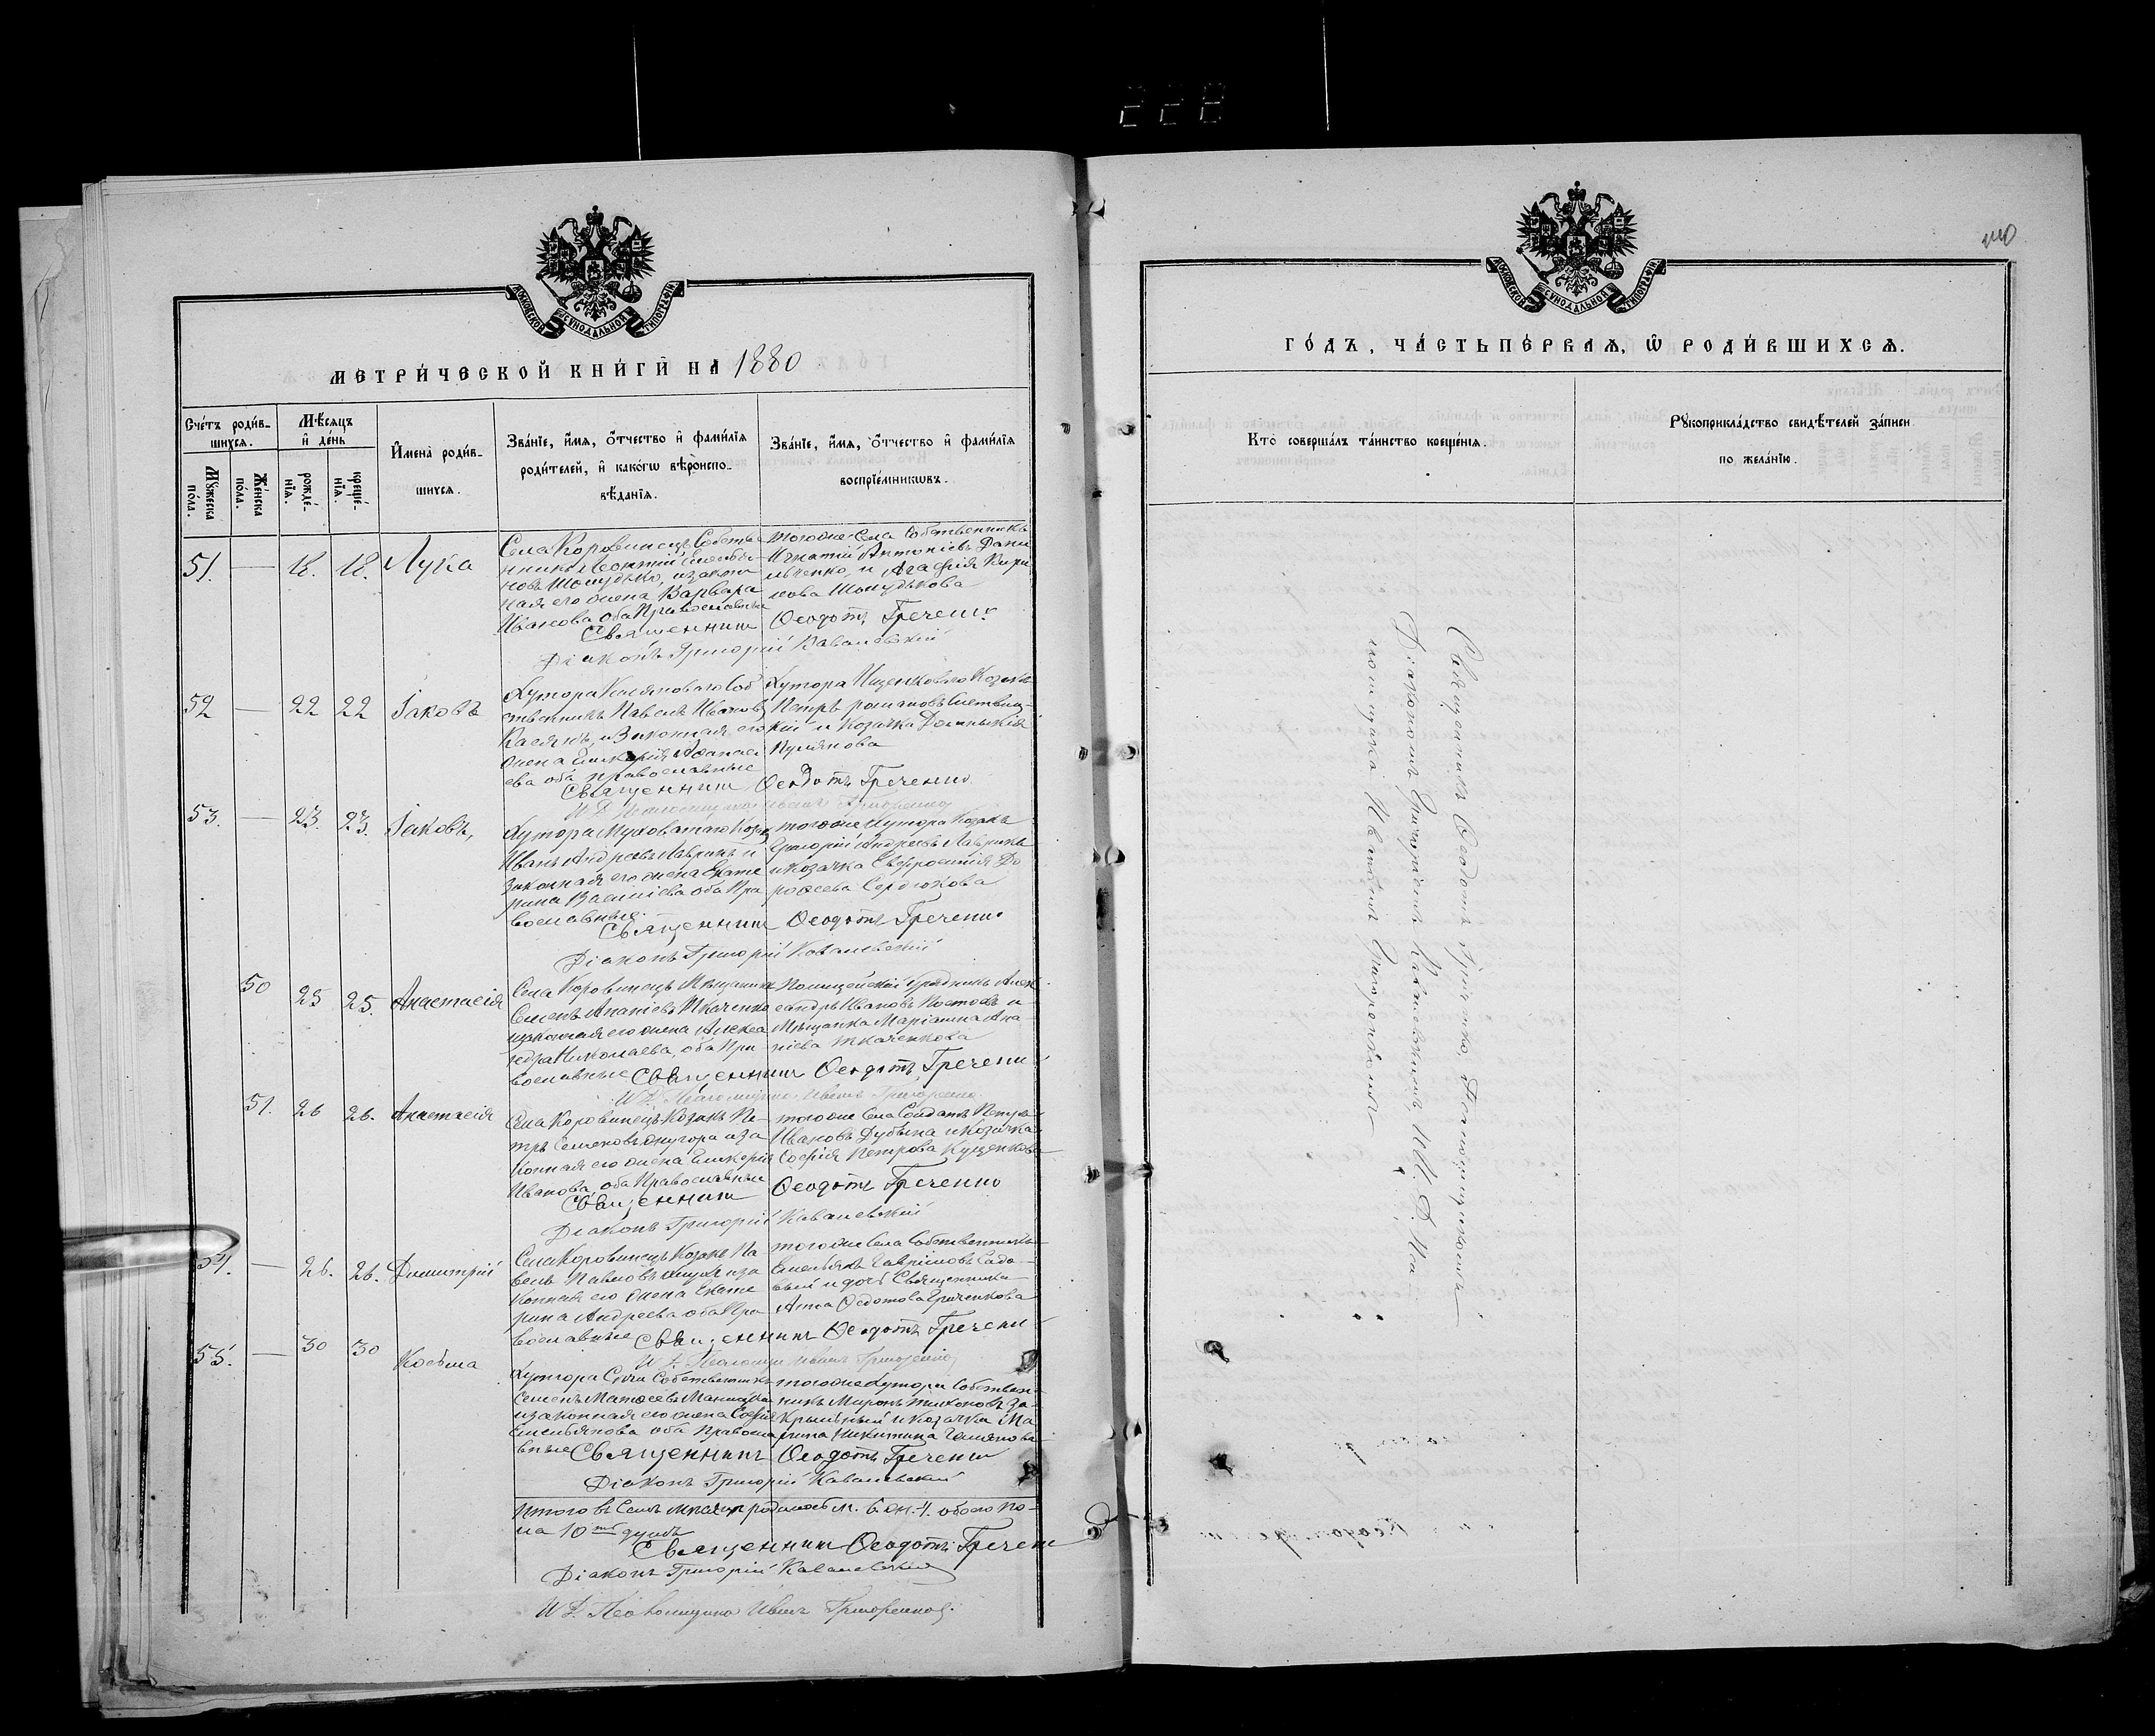 228
МОСКОВСКОЙ СѴНОДАЛЬНОЙ ТИПОГРАФІИ
МЕТРИ́ЧЕСКОЙ КНИ́ГИ НА 1880
Сче́тъ роди́в-
шихсѧ.
Мꙋ́жеска
по́ла.
Же́нска
по́ла.
Мѣ́сѧцъ
и҆ де́нь
рожде́-
нїѧ.
креще́-
нїѧ.
И҆мена̀ роди́в-
шихсѧ.
Зва́нїе, и҆́мѧ, ѻ҆́тчество и҆ фами́лїѧ
роди́телей, и҆ како́гѡ вѣроиспо-
вѣ́данїѧ.
Зва́нїе, и҆́мѧ, ѻ҆́тчество и҆ фами́лїѧ
воспрїе́мникѡвъ.
51. — 18. 18. Лука
Села Коровинецъ, Собстве
нникъ Леонтій
законная
ная его жена Варвара
Иванова, оба Православные
тогоже Села Собственникъ
Игнатій Антоніевъ Дани
льченко, и Агафія Кири
лова
Священник Ѳеодотъ Греченко
Діаконъ Григорій Ковалевскій
52 — 22 22 Іаковъ
Хутора Касяноваго Соб
ственникъ Павелъ Ивановъ
Касянъ, и Законная его
жена Гликерія Аѳанасі
ева оба православные
Хутора Ищенкового Козакъ
Петръ Романовъ
кій и Козачка
Священник Ѳеодотъ Греченко
И. Д. Псаломщика Иванъ Григоренко
53. — 23. 23. Іаковъ,
Хутора Муховатаго Козакъ
Иванъ Андреевъ Лавринъ и
Законная его жена Екате
рина Василіева оба Пра
вославные.
тогоже Хутора Козакъ
Григорій Андреевъ Лавринъ
и Козачка Евфросинія До
рофеева Сердюкова
Священник Ѳеодотъ Греченко
Діаконъ Григорій Ковалевскій
50 25 25. Анастасія
Села Коровинецъ Мѣщанинъ
Семенъ Ананіевъ Ткаченко
и законная его жена Алекса
ндра Николаева, оба Пра
вославные
Полицейскій Урядникъ Алек
сандръ Ивановъ Костовъ и
Мѣщанка Маріанна Ана
ніева Ткаченкова
Священник Ѳеодотъ Гречен
И. Д. Псаломщика Иванъ Григоренко
51. 26 26. Анастасія
Села Коровинецъ Козакъ Пе-
тръ Семеновъ Жугора и за
конная его жена Гликерія
Иванова, оба Православные
тогоже Села Солдатъ Петръ
Ивановъ Дубына и Козачка
Софія Петрова Куценкова
Священник Ѳеодотъ Гречено
Діаконъ Григорій Ковалевскій
54. — 26. 26. Димитрій
Села Коровинецъ Козакъ Па
велъ Павловъ и за
конная его жена Екате
рина Андреева оба Пра
вославные
тогоже Села Собственникъ
Емельянъ Гавріиловъ Садо-
вый и дочь Священника
Анна Ѳеодотова Гриченкова
Священник Ѳеодотъ Гречен
И. Д. Псаломщ Иванъ Григоренко
55. — 30 30 Косьма
Хутора Сѣчи Собственникъ
Семенъ Матѳеевъ
и законная его жена Софія
Емельянова оба Правосла
вные
тогоже Хутора Собствен-
никъ Миронъ Тихоновъ За-
крыльный и Козачка Ма
рина Никитина
Священник Ѳеодотъ Гречени
Діаконъ Григорій Ковалевскій
Итого въ Семъ мѣсяцѣ родилось м. 6. ж. 4. обоего по-
ла 10ть душъ
Священник Ѳеодотъ Гречен
Діаконъ Григорій Ковалевскій
И. Д. Псаломщика Иванъ Григоренко.
МОСКОВСКОЙ СѴНОДАЛЬНОЙ ТИПОГРАФІИ
ГО́ДЪ, ЧА́СТЬ ПЕ́РВАѦ, Ѡ҆ РОДИ́ВШИХСѦ.
Кто̀ соверша́лъ та́инство креще́нїѧ.
Рꙋкоприкла́дство свидѣ́телей за́писи
по жела́нїю.
Священникъ Ѳеодотъ Гриченко, съ
Діакономъ Григоріемъ Ковалевскимъ, И. Д. Пса
ломщика Иваномъ Григоренкомъ